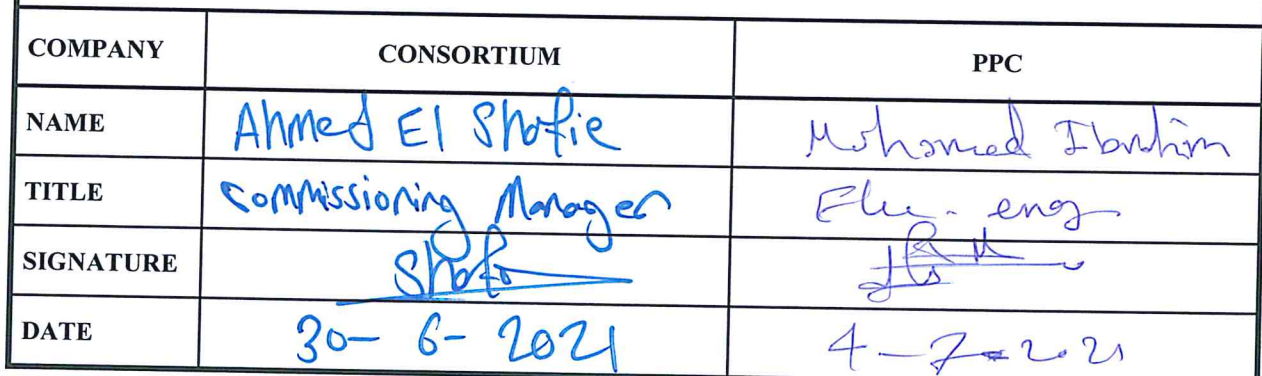 COMPANY CONSORTIUM PPC
NAME Ahmed El Shafie Mohamed Ibrahim
TITLE Commissioning Manager Elec. eng
SIGNATURE Shafie
DATE 30- 6- 2021 4-7-2021